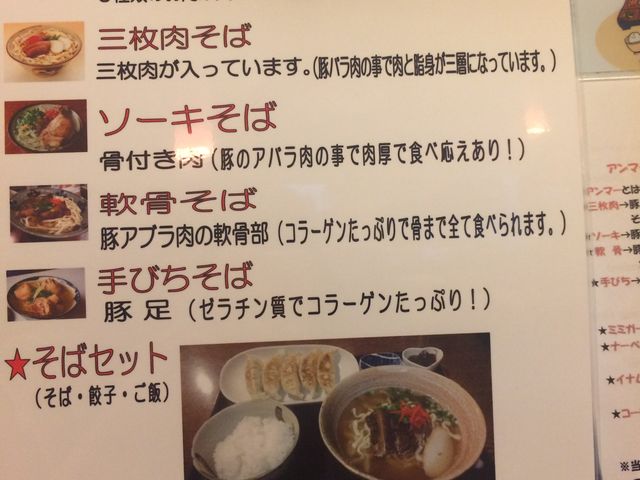 三枚肉そば
三枚肉が入っています。(豚バラ肉の事で肉と脂身が三層になっています。)
ソーキそば
骨付き肉(豚のアバラ肉の事で肉厚で食べ応えあり!)
軟骨そば
豚アブラ肉の軟骨部(コラーゲンたっぷりで骨まで全て食べられます。)
手びちそば
豚足(ゼラチン質でコラーゲンたっぷり!)
★そばセット
(そば・餃子・ご飯)
アンマー
アンマーとは
三枚肉→豚
ソーキ→豚
軟骨→豚
★手びち→
★ミミガー
★ナーベ
★イナム
★コー
※当